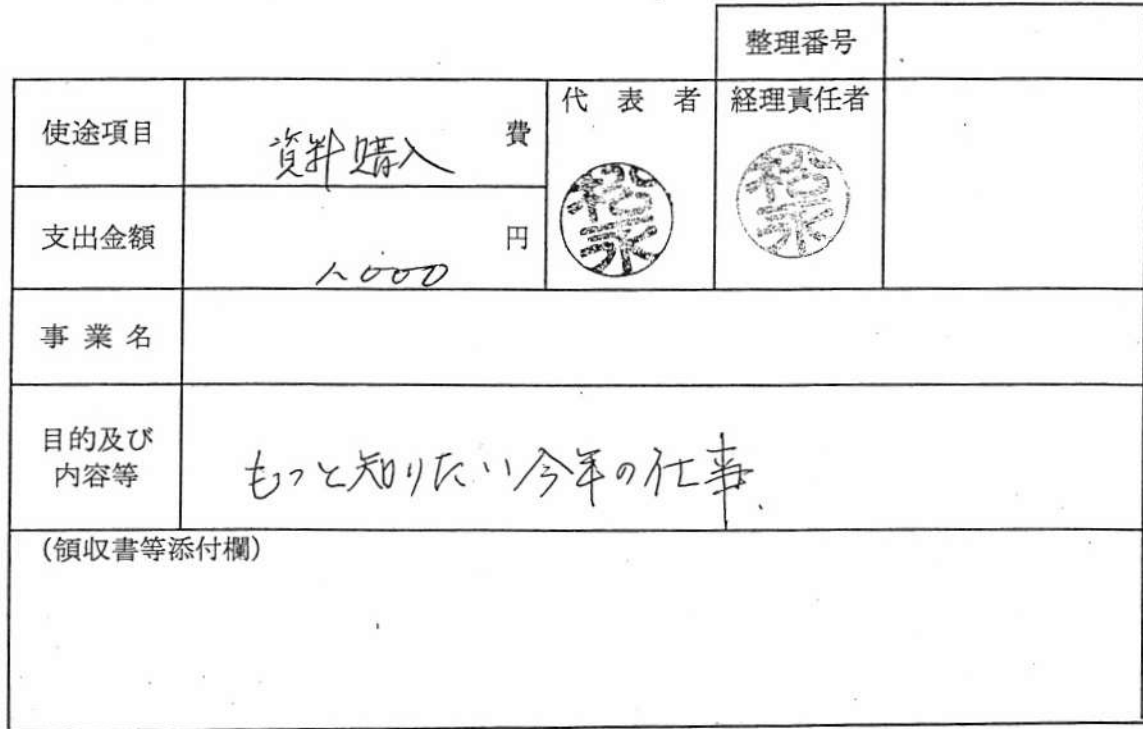 整理番号
使途項目 資料購入 費 代表者 経理責任者
支出金額 1,000 円
事業名
目的及び
内容等
もっと知りたい今年の仕事
(領収書等添付欄)